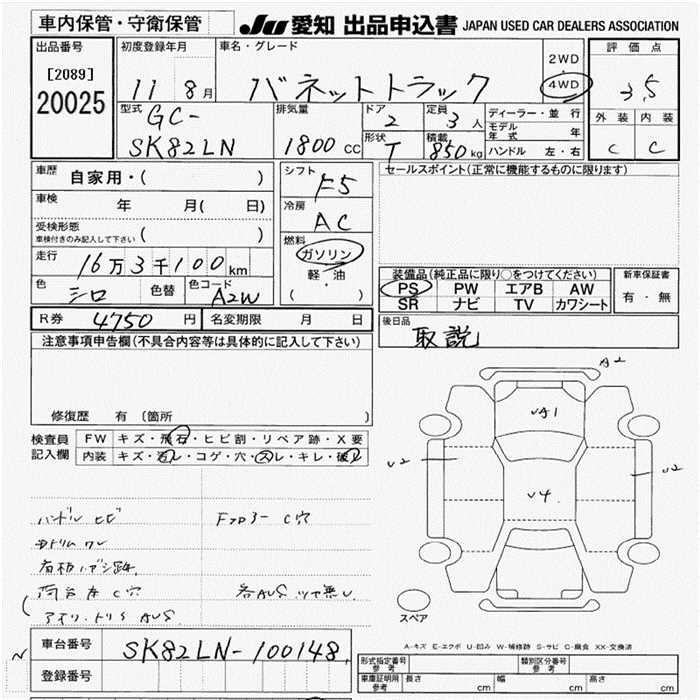 車内保管・守衛保管
JU 愛知 出品申込書 JAPAN USED CAR DEALERS ASSOCIATION
出品番号
[2089]
20025
初度登録年月
11 8月
車名・グレード
バネットトラック
2WD
4WD
評価点
3.5
外装 内装
C C
型式
GC-
SK82LN
排気量
1800 CC
ドア
2
定員
3人
形状
T
積載
850kg
ディーラー・並行
モデル年式 年
ハンドル 左・右
車歴 自家用・( )
車検 年 月( 日)
受検形態
車検付きのみ記入して下さい ( )
走行 16万3千100km
色 シロ 色替 色コード A2W
シフト
F5
冷房
AC
燃料
ガソリン
軽・油
( )
セールスポイント(正常に機能するものに限ります)
装備品(純正品に限り○をつけてください)
PS PW エアB AW
SR ナビ TV カワシート
新車保証書
有・無
R券 4750円 名変期限 月 日
後日品
取説
注意事項申告欄(不具合内容等は具体的に記入して下さい)
修復歴 有 (箇所
検査員記入欄
FW キズ・飛石・ヒビ割・リペア跡・X要
内装 キズ・ヨレ・コゲ・穴・スレ・キレ・破レ
A2
UA1
U2
U4
U2
スペア
ハンドル ヒビ
フロアー C穴
A-キズ E-エクボ U-凹み W-補修跡 S-サビ C-腐食 XX-交換済
車台番号 SK82LN-100148
登録番号
形式指定番号 参考
類別区分番号 参考
車庫証明用 参考 長さ cm 幅 cm 高さ cm